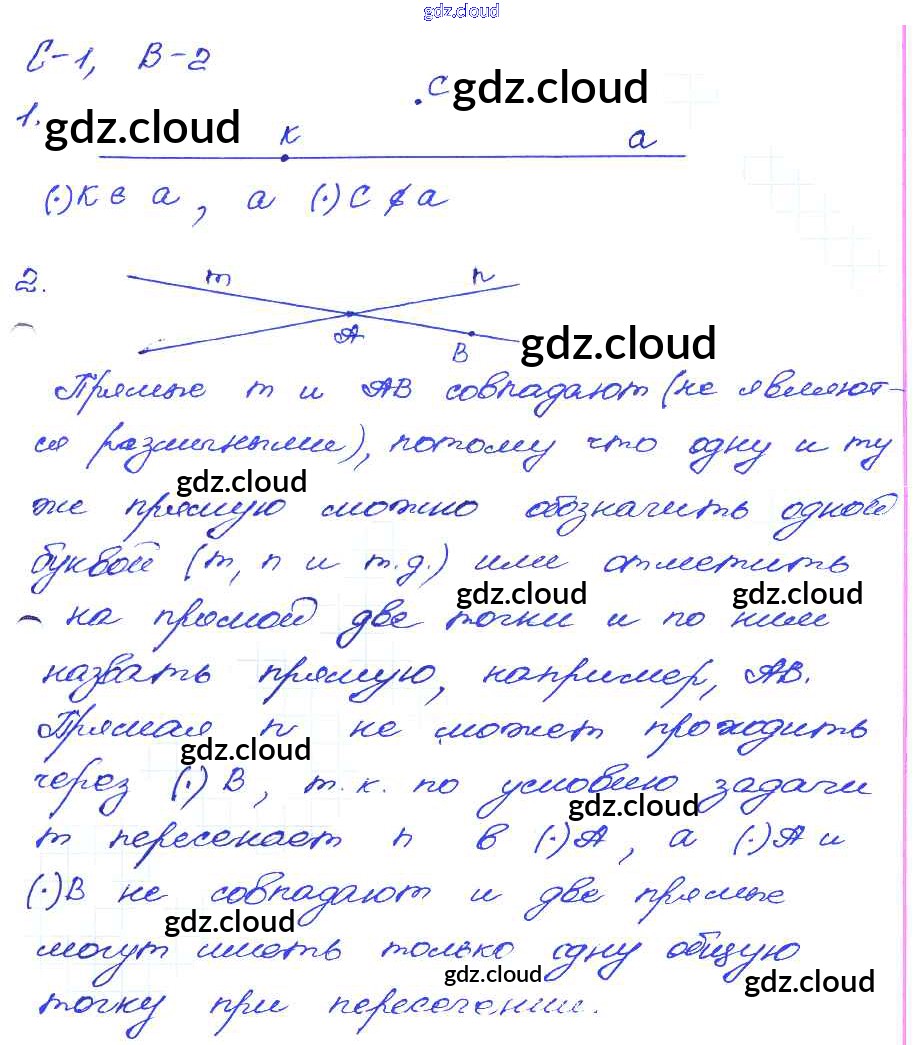 gdz.cloud
С-1, В-2
.C gdz.cloud
1. gdz.cloud K a
(·)K ∈ a, а (·)C ∉ a
2. m n
A B gdz.cloud
Прямые m и AB совпадают (не являют-
ся различными), потому что одну и ту
gdz.cloud
же прямую можно обозначить одной
буквой (m, n и т.д.) или отметить
gdz.cloud gdz.cloud
на прямой две точки и по ним
назвать прямую, например, AB.
Прямая n не может проходить
gdz.cloud
через (·) B, т.к. по условию задачи
gdz.cloud
m пересекает n в (·)A, а (·)A и
(·)B не совпадают и две прямые
gdz.cloud
могут иметь только одну общую
gdz.cloud gdz.cloud
точку при пересечении.